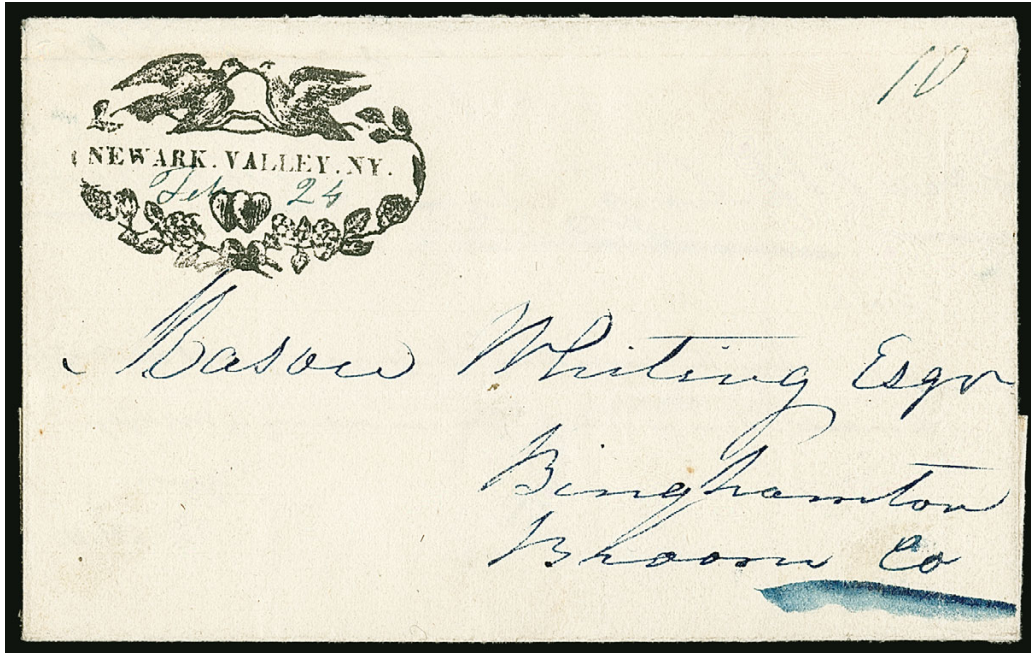 10
NEWARK. VALLEY. NY.
Feb 24
Mason Whiting Esqr
Binghamton
Bhoom Co